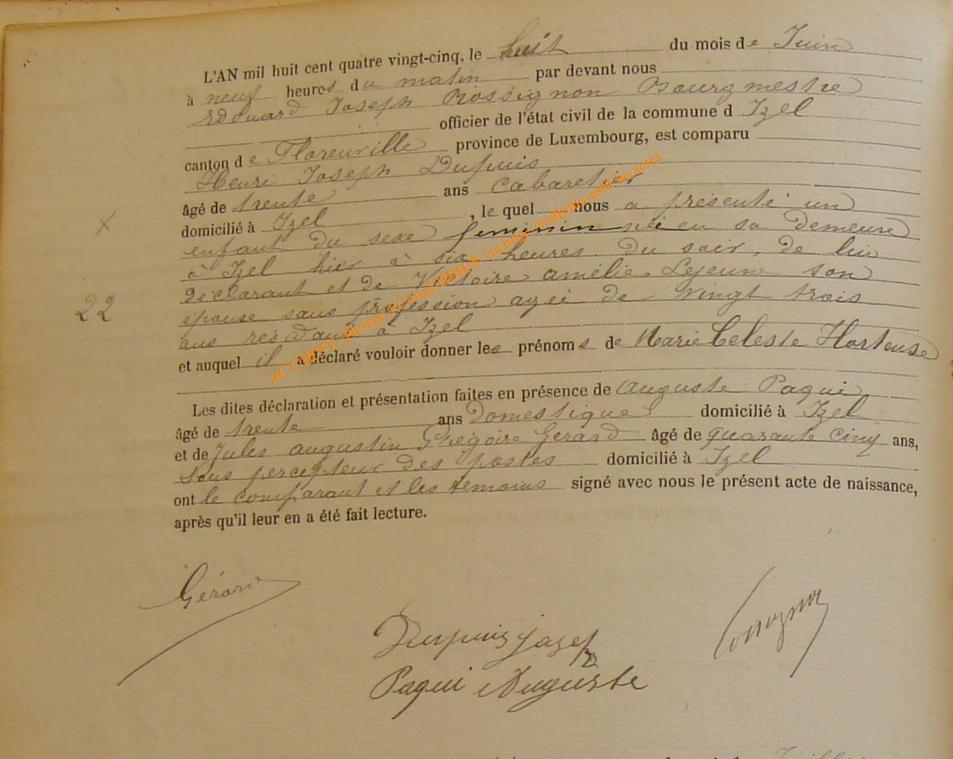 L'AN mil huit cent quatre vingt-cinq, le huit du mois de Juin
à neuf heures du matin par devant nous
Edouard Joseph Rossignon Bourgmestre
officier de l'état civil de la commune d Izel
canton de Florenville province de Luxembourg, est comparu
Henri Joseph Dupuis
âgé de trente ans Cabaretier
domicilié à Izel, le quel nous a présenté un
enfant du sexe feminin né en sa demeure
à Izel hier à six heures du soir, de lui
déclarant et de Victoire Amélie Lejeune son
épouse sans profession agée de vingt trois
ans résidant à Izel
et auquel il a déclaré vouloir donner les prénoms de Marie Celeste Hortense
22
Les dites déclaration et présentation faites en présence de Auguste Paqui
âgé de trente ans Domestique domicilié à Izel
et de Jules Augustin Grégoire Gerard âgé de quarante cinq ans,
sous percepteur des postes domicilié à Izel
ont le comparant et les témoins signé avec nous le présent acte de naissance,
après qu'il leur en a été fait lecture.
Gérard
Dupuis Jozef
Paqui Auguste